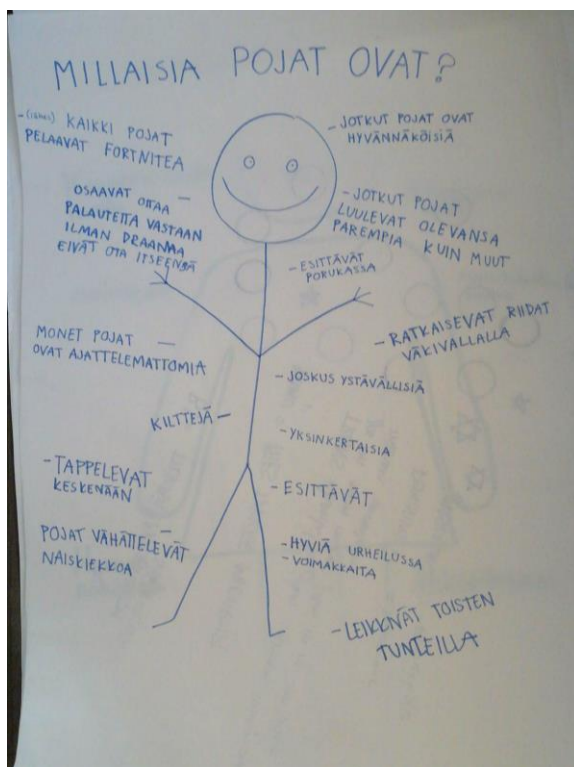 MILLAISIA POJAT OVAT?
- (lähes) KAIKKI POJAT
PELAAVAT FORTNITEA
OSAAVAT OTTAA -
PALAUTETTA VASTAAN
ILMAN DRAAMAA
EIVÄT OTA ITSEENSÄ
MONET POJAT -
OVAT AJATTELEMATTOMIA
KILTTEJÄ -
- TAPPELEVAT
KESKENÄÄN
POJAT VÄHÄTTELEVÄT -
NAISKIEKKOA
- JOTKUT POJAT OVAT
HYVÄNNÄKÖISIÄ
- JOTKUT POJAT
LUULEVAT OLEVANSA
PAREMPIA KUIN MUUT
- ESITTÄVÄT
PORUKASSA
- RATKAISEVAT RIIDAT
VÄKIVALLALLA
- JOSKUS YSTÄVÄLLISIÄ
- YKSINKERTAISIA
- ESITTÄVÄT
- HYVIÄ URHEILUSSA
- VOIMAKKAITA
- LEIKKIVÄT TOISTEN
TUNTEILLA